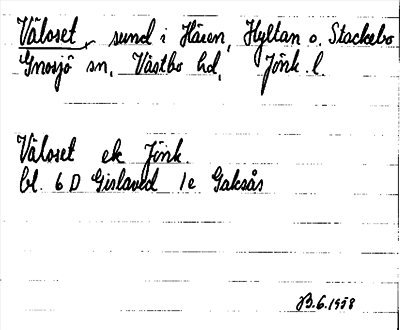 Väloset, sund i Hären, Hyltan o. Stackebo
Gnosjö sn, Västbo hd, Jönk. l.
Väloset ek Jönk.
bl. 6 D Gislaved 1e Gaksås
B.6.1958